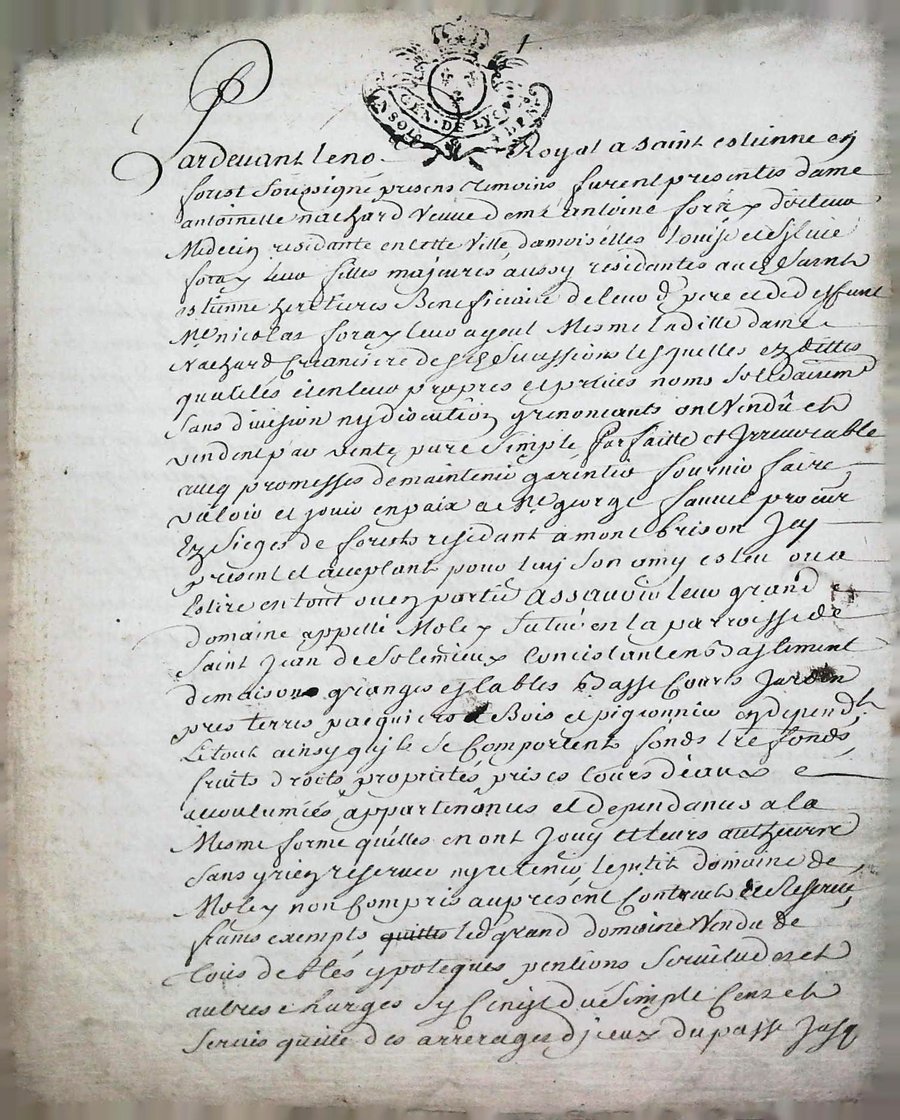 1
GEN. DE LYON
UN SOL
Pardevant le no. Royal a saint estienne en
forest soussigné presens temoins furent presentes dame
antoinette nachard veuve de mr antoine foray docteur
Medecin residante en cette ville damoiselles Louise et
foray leur filles majeures aussy residantes audt Saint
estienne heretieres Beneficiaire de leur d pere et de deffunt
Me nicolas foray leur ayeul Mesme laditte dame
Nachard Creansiere desd suscessions lesquelles ez dittes
qualités et en leur propres et privés noms solidairemt
sans division ny discution y renoncants ont vendu et
vendent par vente pure simple parfaitte et Irrevocable
aveq promesses de maintenir garentir fournir faire
valoir et jouir en paix a Me george procur
Ez sieges de forests residant a montbrison Icy
present et aceptant pour luy son amy esleu ou a
Eslire en tout ou en partie assavoir leur grand
Domaine appellé Moley situé en la parroisse de
Saint Jean de Solemieux Concistant en Bastiment
de maison granges estables basse Cours Jardin
pres terres paquiers Bois et pigeonnier en dependt
Le tout ainsy qu'il se Comportent fonds tre fonds
fruits droits proprietés prises Cours d'eaux e
acoutumées appartenances et dependances a la
Mesme forme qu'elles en ont Jouy et leurs autheurs
sans y rien reserver ny retenir le petit domaine de
Moley non Compris au present Contract de Reserve
frans exempts quittes led grand domaine Vendu de
tous debtes ypoteques pentions servitudes et
autres charges sy Ce n'est du simple Cens et
servis quitte des arrerages d'jeux du passé Jusq